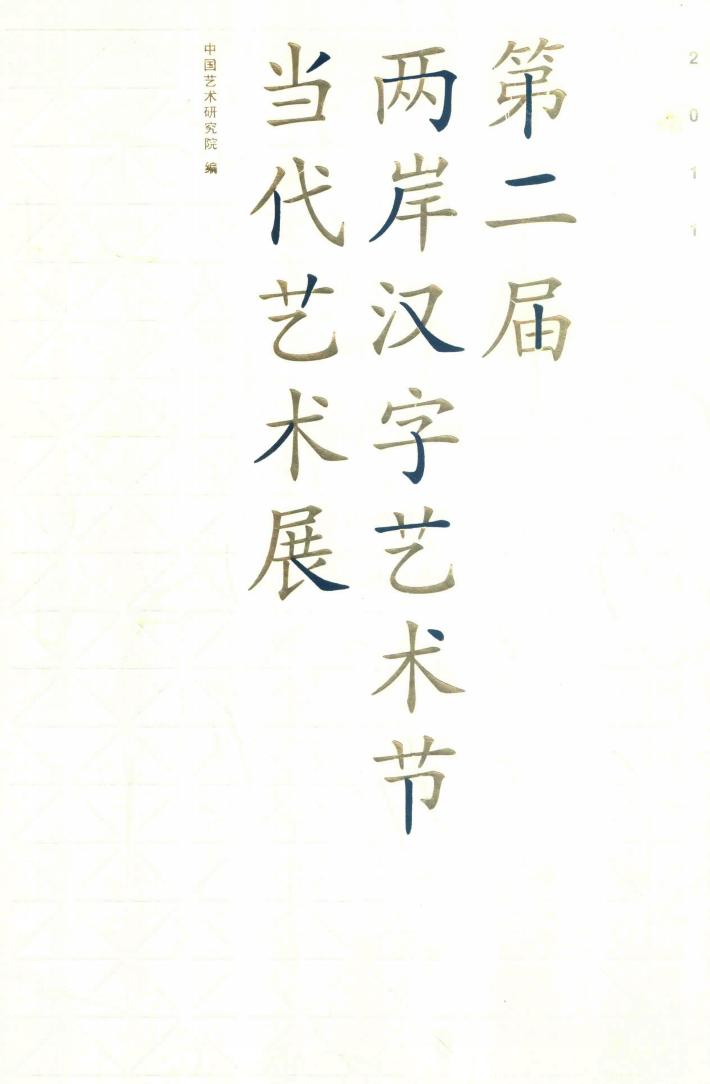 2011
第二届
两岸汉字艺术节
当代艺术展
中国艺术研究院 编